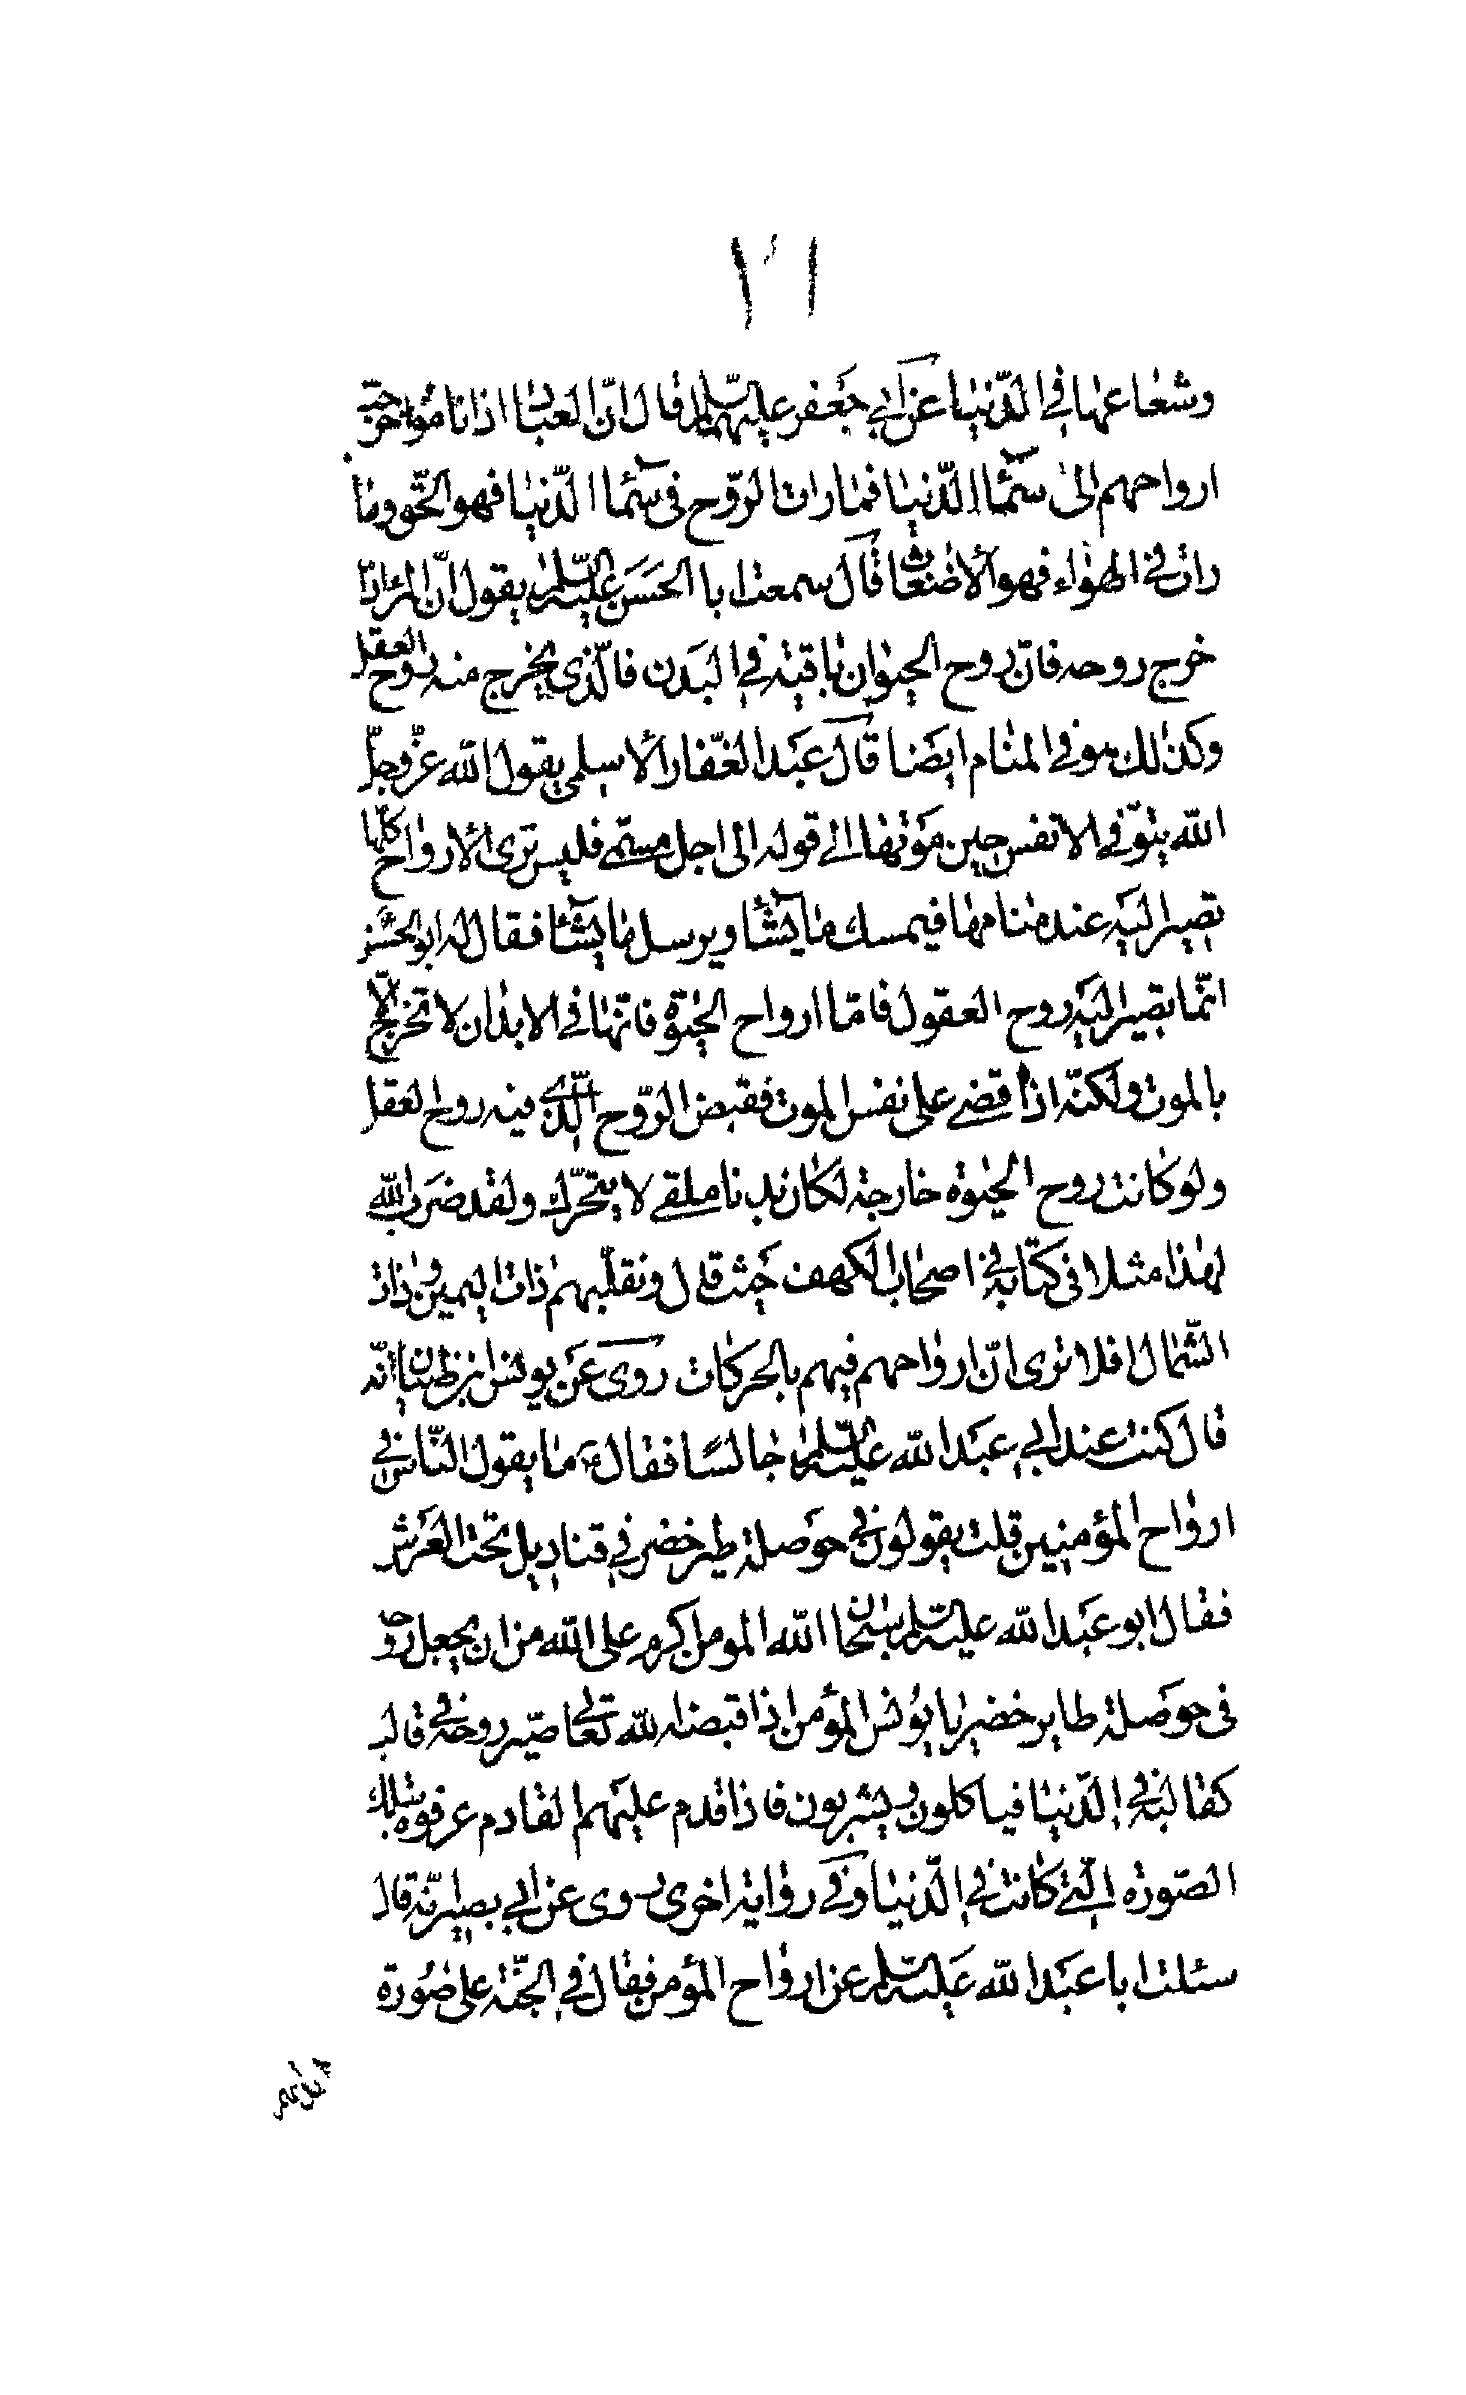 ١٢١
وشعاعها في الدّنيا عن ابي جعفر عليهما السّلم قال انّ العباد اذا ناموا خرجت
ارواحهم الى سمآء الدّنيا فما رات الرّوح في سمآء الدّنيا فهو الحقّ وما
رات في الهواء فهو الأضغاث قال سمعت ابا الحسن عليه السّلم يقول انّ المرء اذا
خرج روحه فان روح الحيوان باقية في البدن فالّذي يخرج منه روح العقل
وكذلك هو في المنام ايضا قال عبد الغفّار الأسلمي يقول الله عزّ وجلّ
الله يتوفّى الانفس حين موتها الى قوله الى اجل مسمّى فليس ترى الأرواح كلّها
تصير اليه عند منامها فيمسك ما يشآء ويرسل ما يشآء فقال له ابو الحسن
انّما يصير اليه روح العقول فامّا ارواح الحيوة فانّها في الابدان لا تخرج الّا
بالموت ولكنّه اذا قضى على نفس الموت فقبض الرّوح الّذي فيه روح العقل
ولو كانت روح الحيوة خارجة لكان بدنا ملقى لا يتحرّك ولقد ضرب الله
لهذا مثلا في كتابه في اصحاب الكهف حيث قال ونقلّبهم ذات اليمين وذات
الشّمال افلا ترى انّ ارواحهم فيهم بالحركات روى عن يونس بن ظبيان انّه
قال كنت عند ابي عبد الله عليه السّلم جالسًا فقال ما يقول النّاس في
ارواح المؤمنين قلت يقولون في حوصلة طير خضر في قناديل تحت العرش
فقال ابو عبد الله عليه السّلم سبحان الله المومن اكرم على الله من ان يجعل روحه
في حوصلة طاير خضر يا يونس المؤمن اذا قبضه الله تعالى صيّر روحه في قالب
كقالبه في الدّنيا فياكلون ويشربون فاذا قدم عليهم القادم عرفوه بتلك
الصّورة الّتي كانت في الدّنيا وفي رواية اخرى روى عن ابي بصير انّه قال
سئلت ابا عبد الله عليه السّلم عن ارواح المؤمن فقال في الجنّة على صورة